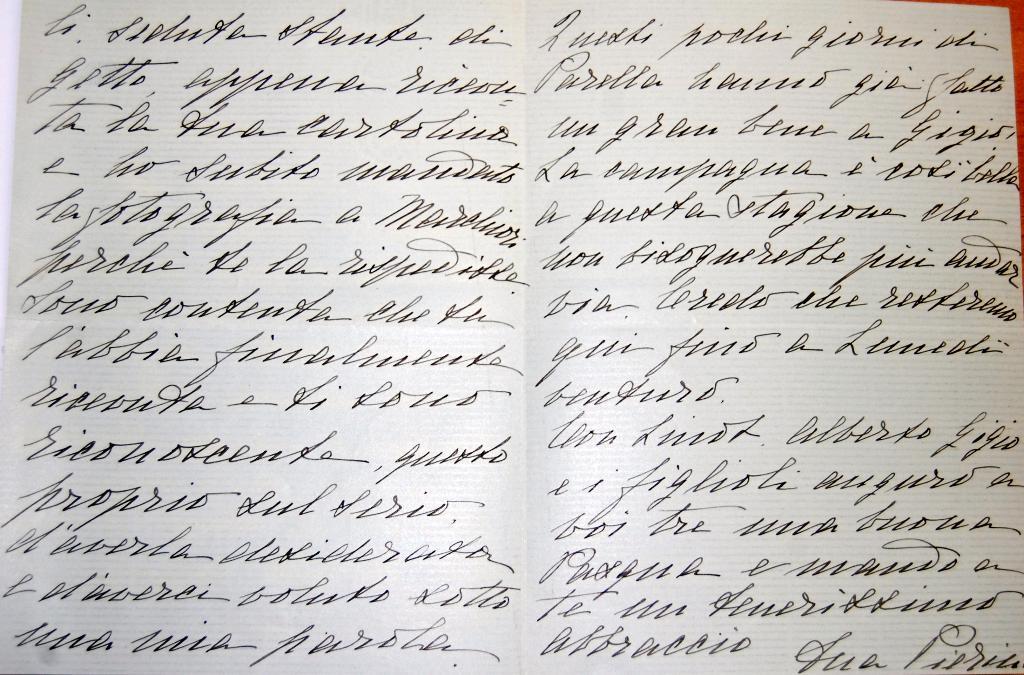 li, seduta stante, di
getto, appena ricevu=
ta la tua cartolina
e ho subito mandato
la fotografia a
perchè te la rispedisse
Sono contenta che tu
l'abbia finalmente
ricevuta e ti sono
riconoscente, questo
proprio sul serio,
d'averla desiderata
e d'averci voluto sotto
una mia parola.
Questi pochi giorni di
Parella hanno già fatto
un gran bene a Gigio.
La campagna è così bella
a questa stagione che
non bisognerebbe più andar
via. Credo che resteremo
qui fino a Lunedì
venturo.
Con Linot, Alberto Gigio
e i figlioli auguro a
voi tre una buona
Pasqua e mando a
te un tenerissimo
abbraccio tua